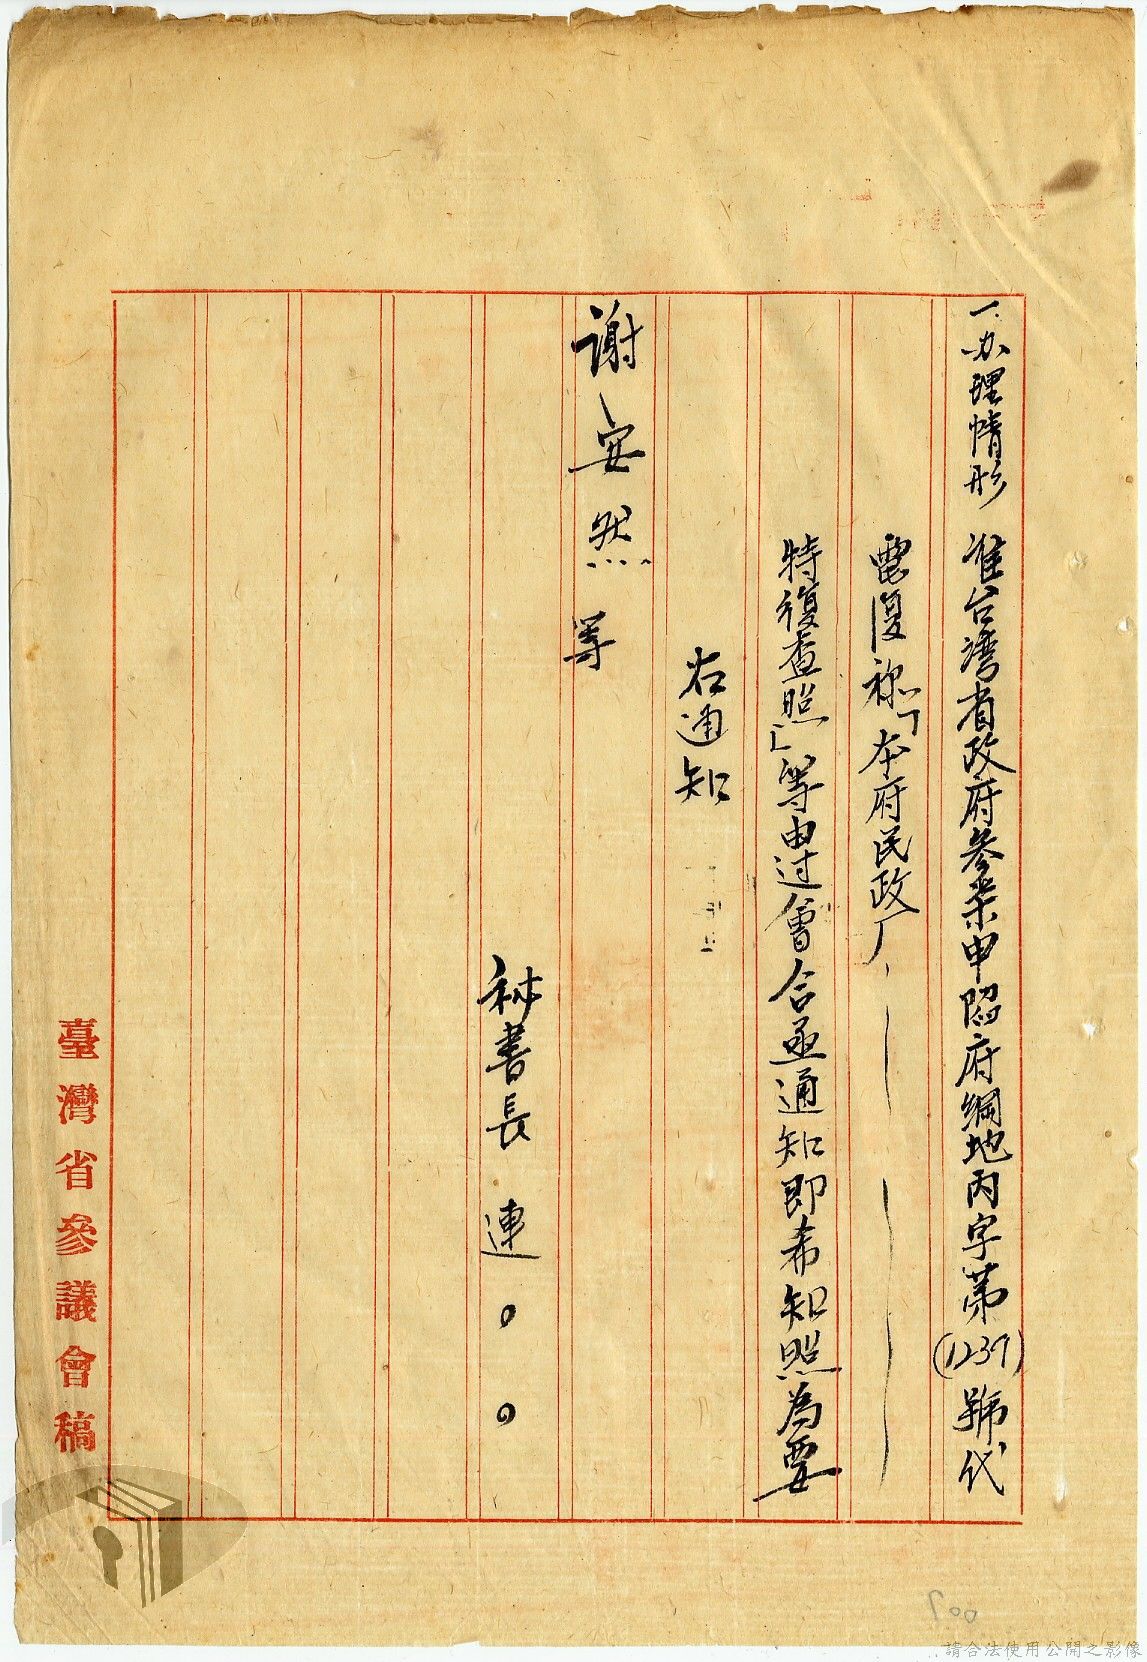 一办理情形 准台湾省政府參柒申陷府綱地丙字第(1237)號代
電復称「本府民政厂
特復查照」等由过會合亟通知即希知照為要
右通知
谢安然等
秘書長 連。。
臺灣省參議會稿
900
請合法使用公開之影像